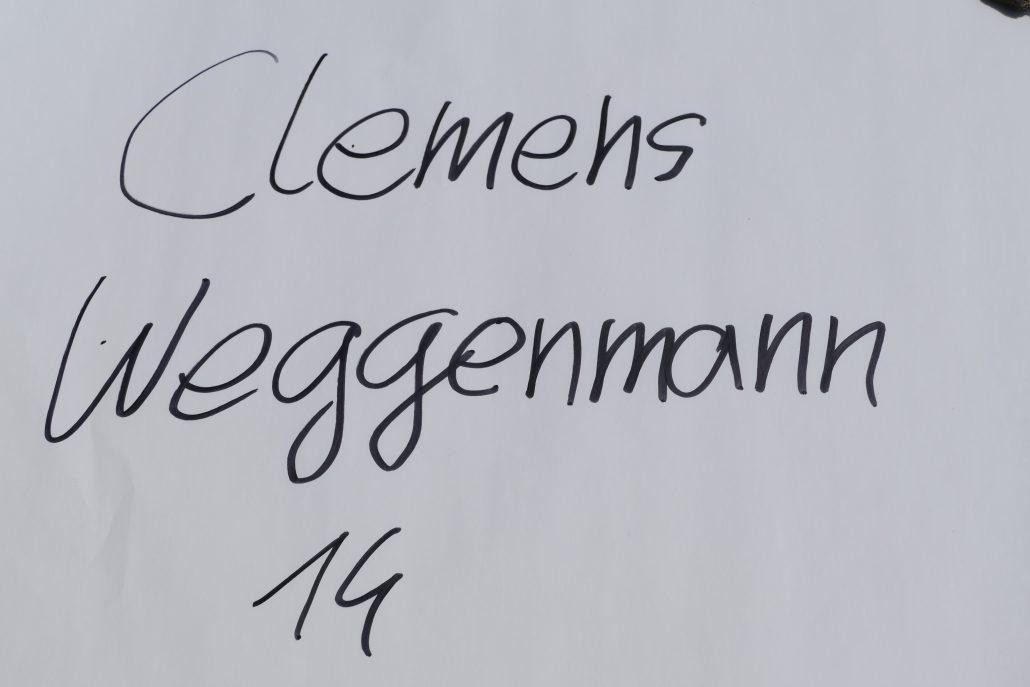 Clemens
Weggenmann
14